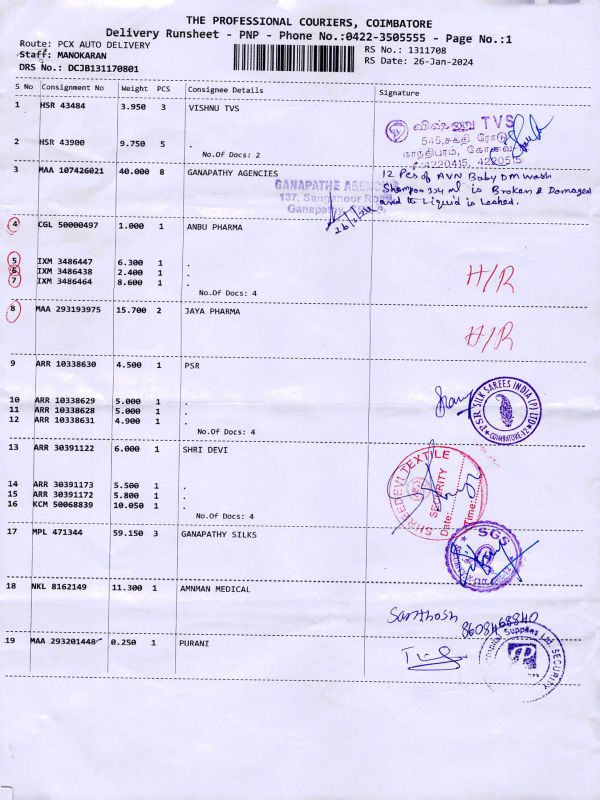 THE PROFESSIONAL COURIERS, COIMBATORE
Delivery Runsheet - PNP - Phone No.:0422-3505555 - Page No.:1
Route: PCX AUTO DELIVERY
RS No.: 1311708
Staff: MANOKARAN
RS Date: 26-Jan-2024
DRS No.: DCJB131170801
S No Consignment No Weight PCS Consignee Details Signature
1 HSR 43484 3.950 3 VISHNU TVS
விஷ்ணு TVS
545, சக்தி ரோடு
காந்திபுரம், கோவை
2 HSR 43900 9.750 5 .
No.Of Docs: 2
:4220415, 4220515
3 MAA 107426021 40.000 8 GANAPATHY AGENCIES
12 Pcs of AVN Baby DM Wash
GANAPATHE AGENCIES
Shampoo 324 ml is Broken & Damaged
137, Sanganoor Road
and the Liquid is Leaked.
Ganapathy
26/1/24
4 CGL 50000497 1.000 1 ANBU PHARMA
5 IXM 3486447 6.300 1 .
6 IXM 3486438 2.400 1 .
7 IXM 3486464 8.600 1 .
H/R
No.Of Docs: 4
8 MAA 293193975 15.700 2 JAYA PHARMA
H/R
9 ARR 10338630 4.500 1 PSR
10 ARR 10338629 5.000 1 .
11 ARR 10338628 5.000 1 .
12 ARR 10338631 4.900 1 .
No.Of Docs: 4
P.S.R SILK SAREES INDIA (P) LTD
COIMBATORE-12
13 ARR 30391122 6.000 1 SHRI DEVI
14 ARR 30391173 5.500 1 .
15 ARR 30391172 5.800 1 .
16 KCM 50068839 10.050 1 .
No.Of Docs: 4
SHREEDEVI TEXTILE
SECURITY
Date:
Time:
17 MPL 471344 59.150 3 GANAPATHY SILKS
SGS
18 NKL 8162149 11.300 1 AMNMAN MEDICAL
Santhosh
8608468840
19 MAA 293201448 0.250 1 PURANI
SECURITY